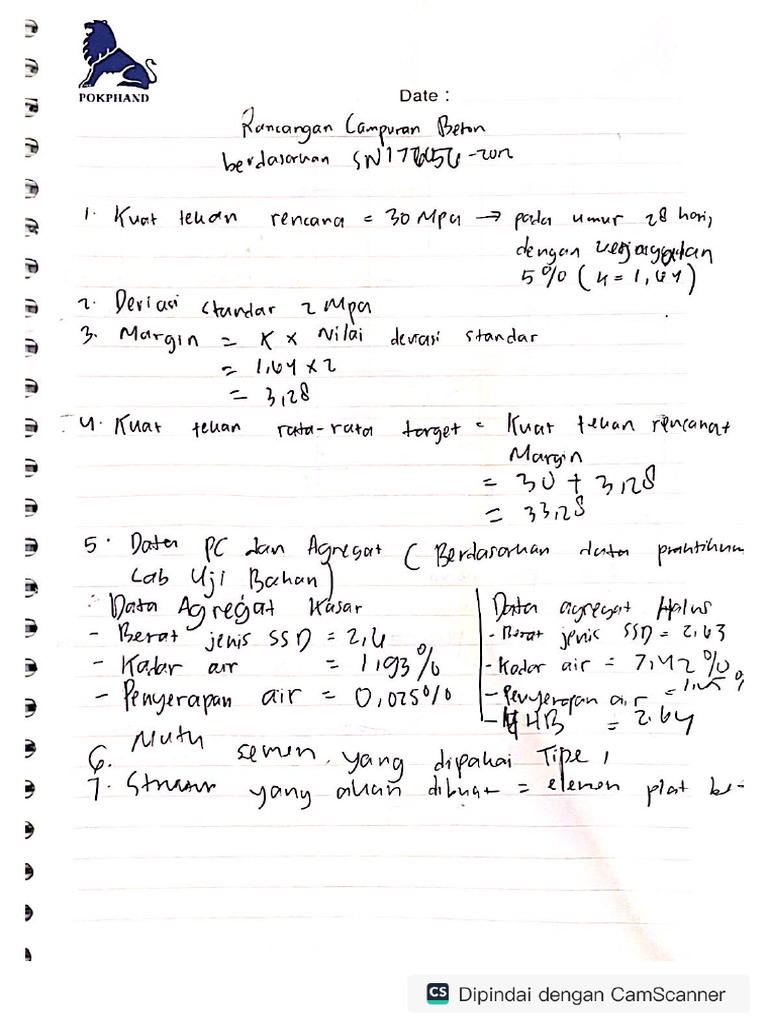 POKPHAND
Date :
Rancangan Campuran Beton
berdasarkan SNI 7656-2012
1. Kuat tekan rencana = 30 Mpa → pada umur 28 hari,
dengan
5% (k = 1,64)
2. Deviasi standar 2 Mpa
3. Margin = K x Nilai deviasi standar
= 1,64 x 2
= 3,28
4. Kuat tekan rata-rata target = Kuat tekan rencana +
Margin
= 30 + 3,28
= 33,28
5. Data PC dan Agregat ( Berdasarkan data praktikum
Lab Uji Bahan)
Data Agregat Kasar
- Berat jenis SSD = 2,4
- Kadar air = 1,93%
- Penyerapan air = 0,025%
Data agregat Halus
- Berat jenis SSD = 2,63
- Kadar air = 7,42%
- Penyerapan air =
- MHB = 2.64
6. Mutu semen yang dipakai Tipe 1
7. Struktur yang akan dibuat = elemen plat be-
CS Dipindai dengan CamScanner